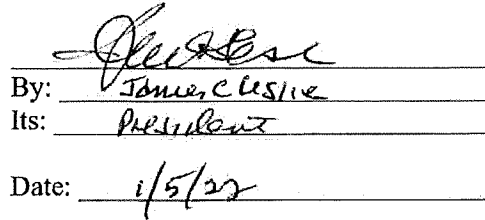 By: James C Leslie
Its: President
Date: 1/5/22